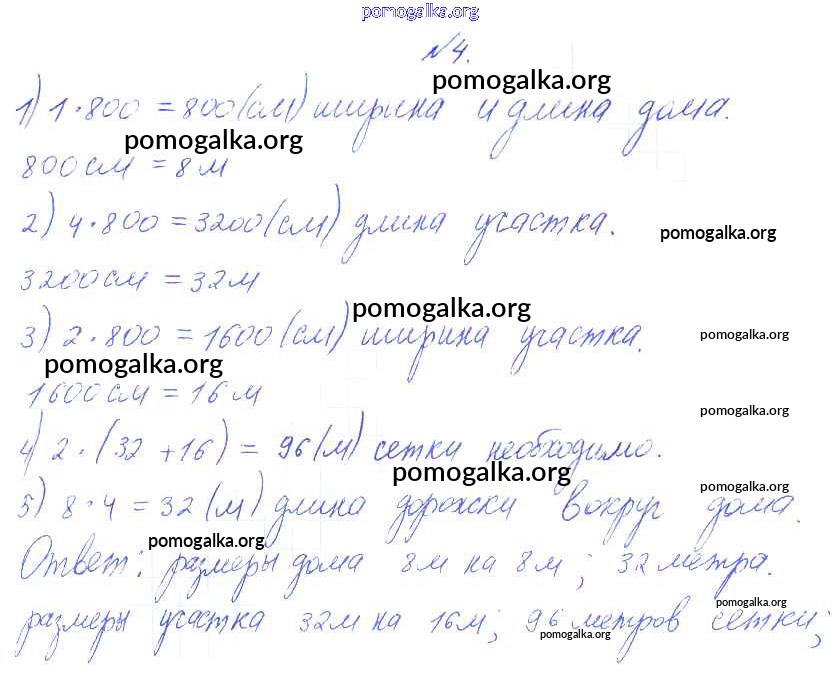 pomogalka.org
№4.
pomogalka.org
1) 1·800 = 800 (см) ширина и длина дома.
pomogalka.org
800 см = 8 м
2) 4·800 = 3200 (см) длина участка.
pomogalka.org
3200 см = 32 м
pomogalka.org
3) 2·800 = 1600 (см) ширина участка.
pomogalka.org
pomogalka.org
1600 см = 16 м
pomogalka.org
4) 2·(32 + 16) = 96 (м) сетки необходимо.
pomogalka.org
pomogalka.org
5) 8·4 = 32 (м) длина дорожки вокруг дома.
pomogalka.org
Ответ: размеры дома 8м на 8м; 32 метра.
pomogalka.org
размеры участка 32м на 16м; 96 метров сетки;
pomogalka.org